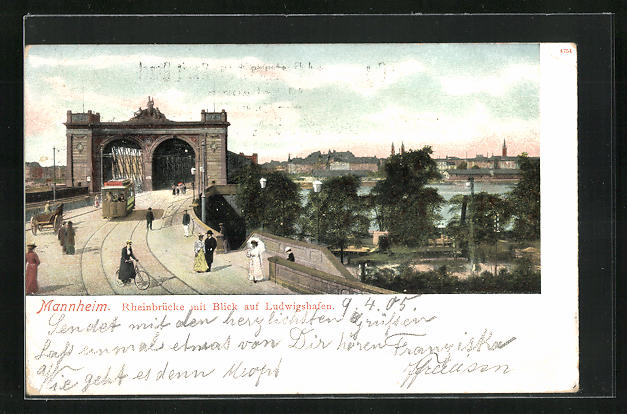 4754
Mannheim. Rheinbrücke mit Blick auf Ludwigshafen.
9.4.05
Sendet mit den herzlichsten Grüßen
Laß einmal etwas von Dir hören Franziska
Wie geht es denn